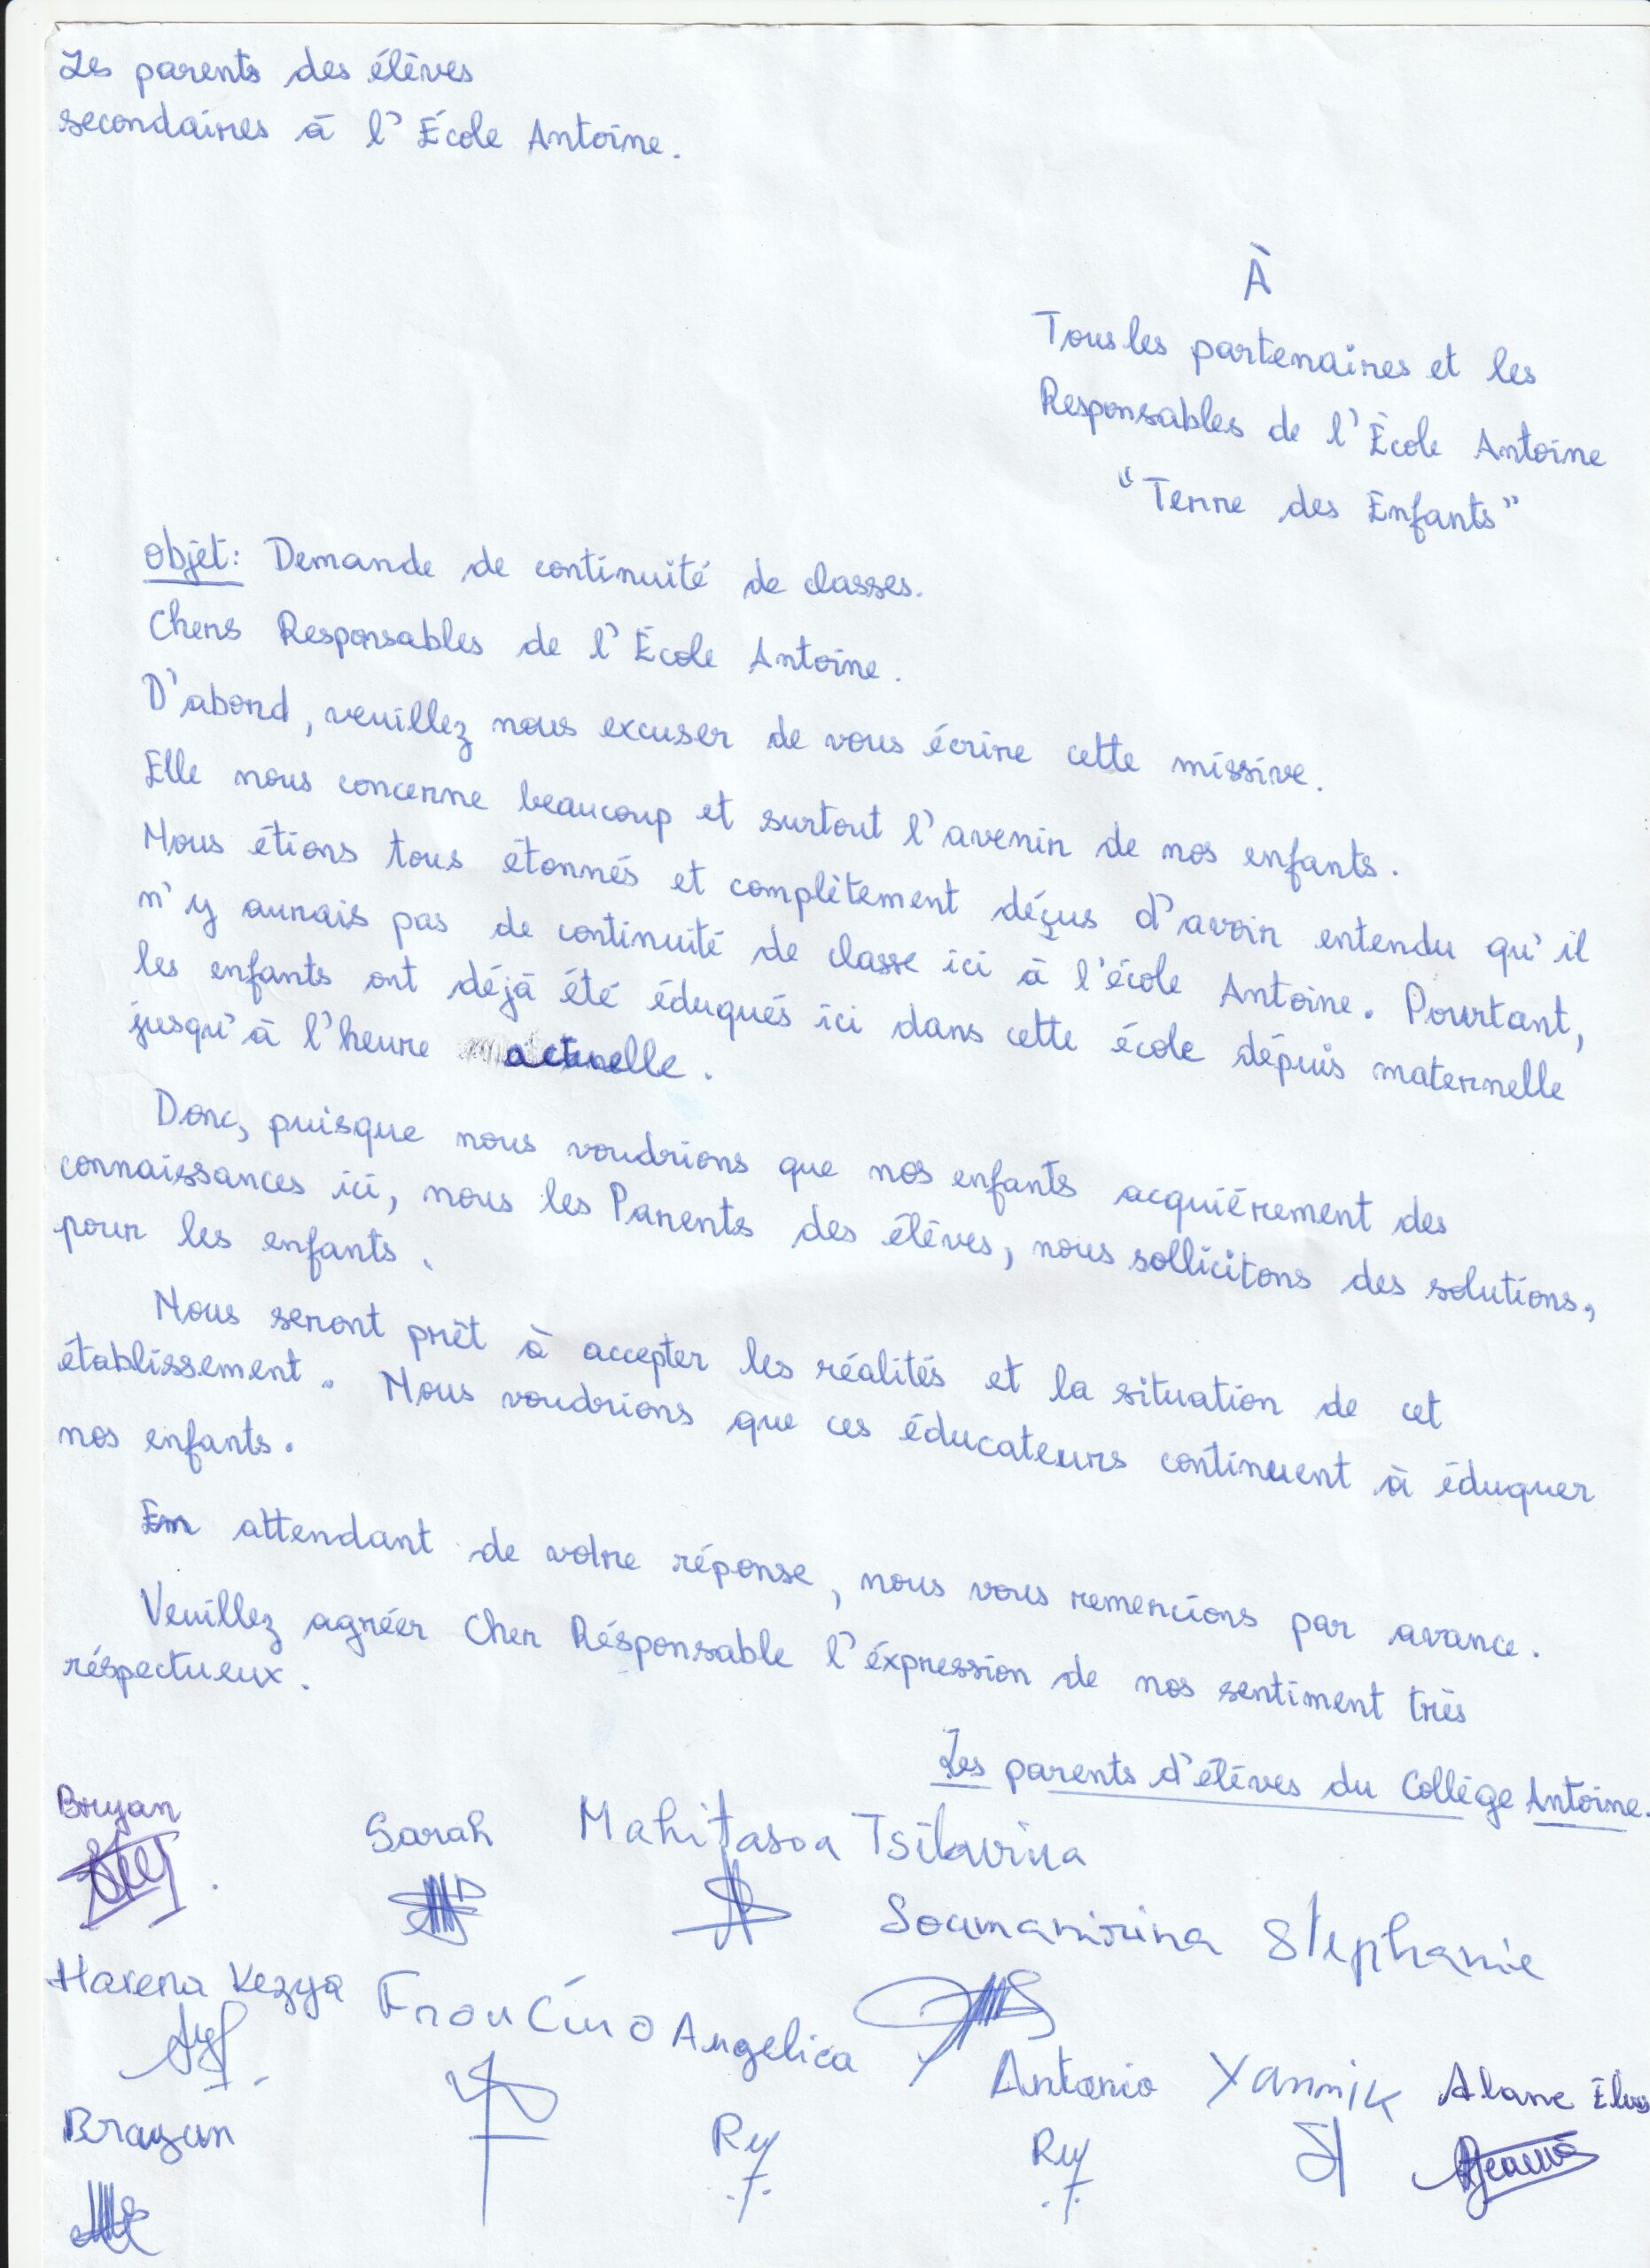 Les parents des élèves
secondaires à l'École Antoine.
À
Tous les partenaires et les
Responsables de l'École Antoine
"Terre des Enfants"
Objet: Demande de continuité de classes.
Chers Responsables de l'École Antoine.
D'abord, veuillez nous excuser de vous écrire cette missive.
Elle nous concerne beaucoup et surtout l'avenir de nos enfants.
Nous étions tous étonnés et complètement déçus d'avoir entendu qu'il
n'y aurais pas de continuité de classe ici à l'école Antoine. Pourtant,
les enfants ont déjà été éduqués ici dans cette école dépuis maternelle
jusqu'à l'heure actuelle.
Donc, puisque nous voudrions que nos enfants acquièrement des
connaissances ici, nous les Parents des élèves, nous sollicitons des solutions,
pour les enfants.
Nous seront prêt à accepter les réalités et la situation de cet
établissement. Nous voudrions que ces éducateurs continuent à éduquer
nos enfants.
En attendant de votre réponse, nous vous remercions par avance.
Veuillez agréer Cher Résponsable l'éxpression de nos sentiment très
réspectueux.
Les parents d'élèves du Collège Antoine.
Bryan
Sarah Mahitasoa Tsilavina
Soamanirina Stephanie
Harena Kezya Francino Angelica
Antonio Yannik Alane
Brayan